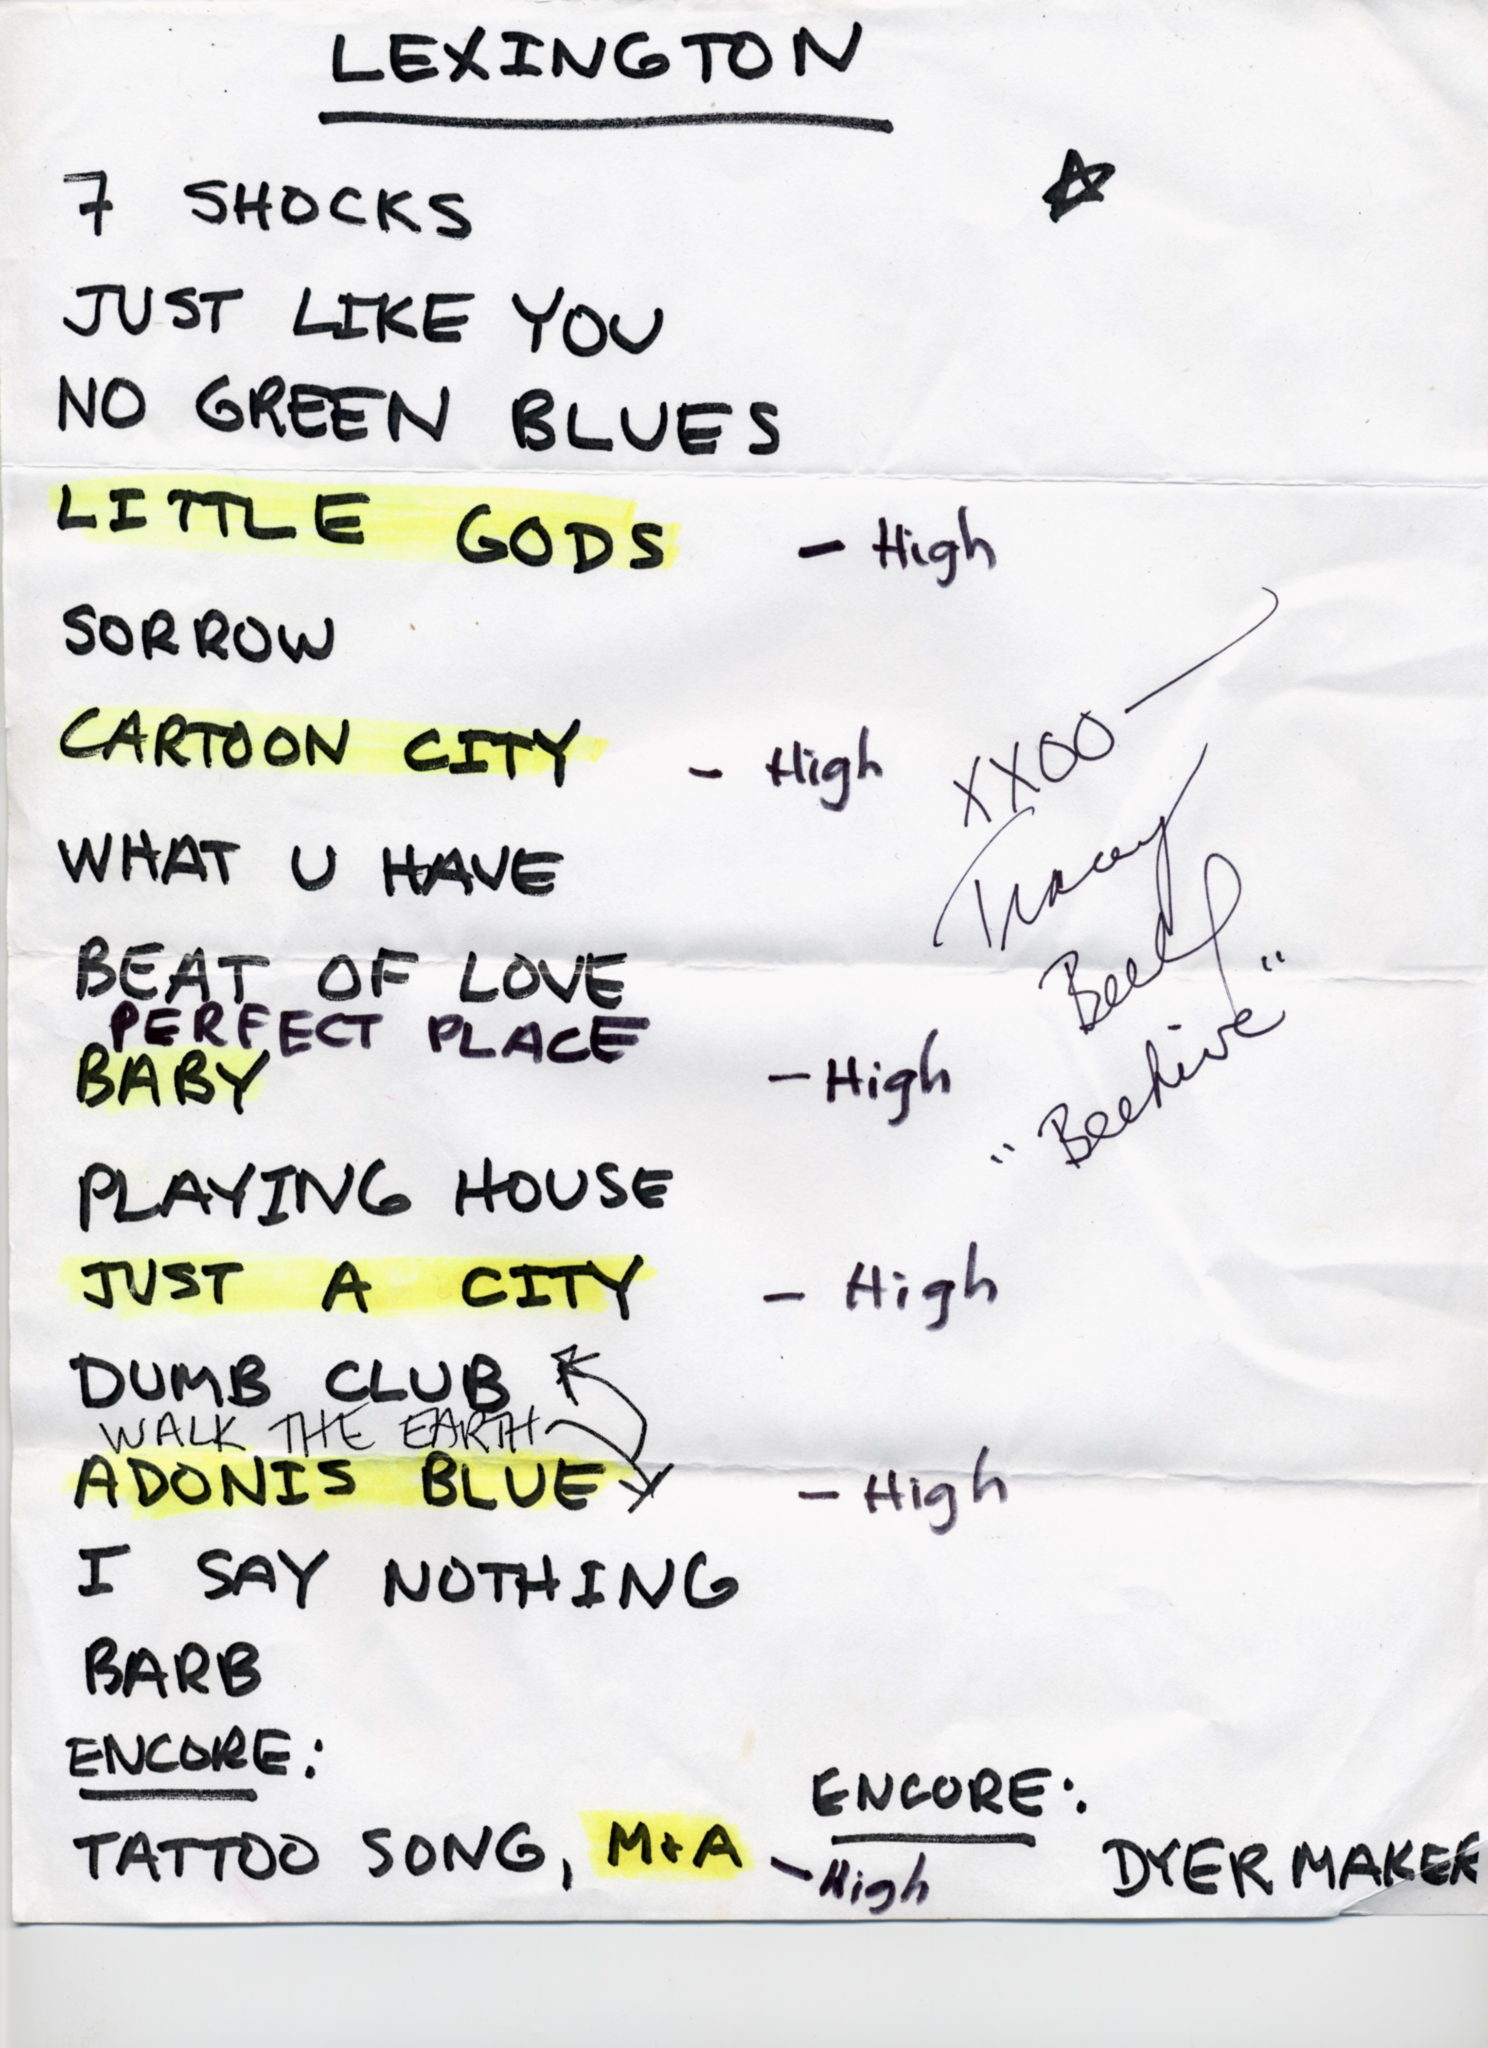 LEXINGTON
7 SHOCKS
JUST LIKE YOU
NO GREEN BLUES
LITTLE GODS - High
SORROW
CARTOON CITY - High
XXOO
Tracey
WHAT U HAVE
BEAT OF LOVE
PERFECT PLACE
BABY - High
"Beehive"
PLAYING HOUSE
JUST A CITY - High
DUMB CLUB
WALK THE EARTH
ADONIS BLUE - High
I SAY NOTHING
BARB
ENCORE:
TATTOO SONG, M+A - High
ENCORE:
DYER MAKER